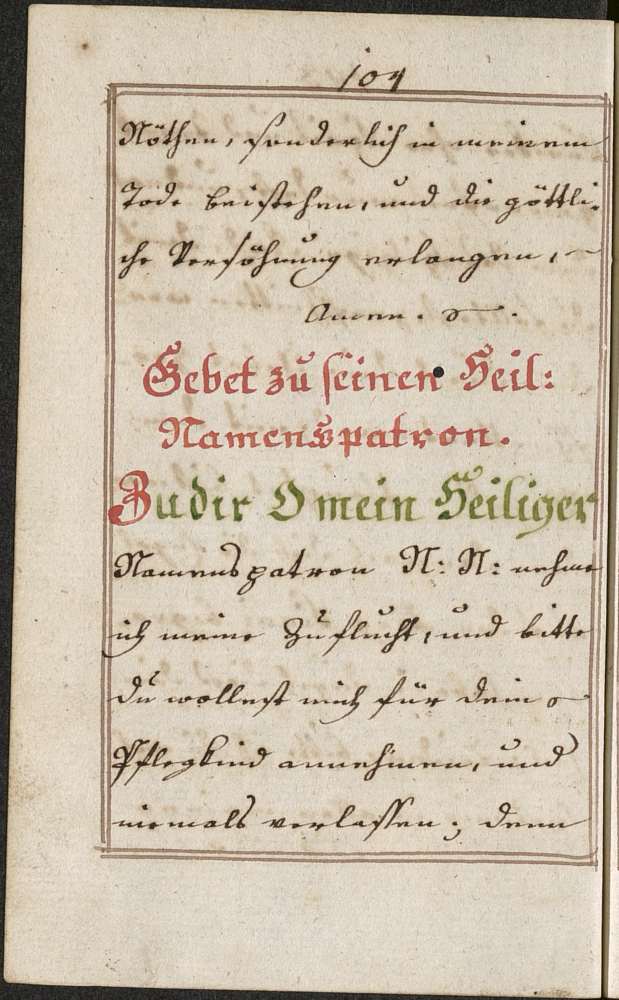 104
Nöthen, sonderlich in meinem
Tode beistehen, und die göttli-
che Versöhnung erlangen, ~
Amen.
Gebet zu seinen Heil:
Namenspatron.
Zu dir O mein Heiliger
Namenspatron N: N: nehme
ich meine Zuflucht, und bitte
du wollest mich für dein
Pflegkind annehmen, und
niemals verlassen; denn